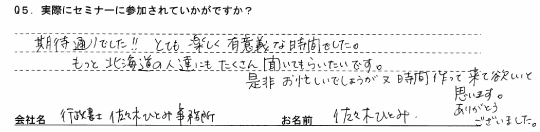 Q5. 実際にセミナーに参加されていかがですか？
期待通りでした!! とても 楽しく 有意義な時間でした。
もっと 北海道の人達にも たくさん 聞いてもらいたいです。
是非 お忙しいでしょうが 又 時間 作って 来て欲しいと
思います。
ありがとう
ございました。
会社名 行政書士 佐々木ひとみ事務所 お名前 佐々木ひとみ